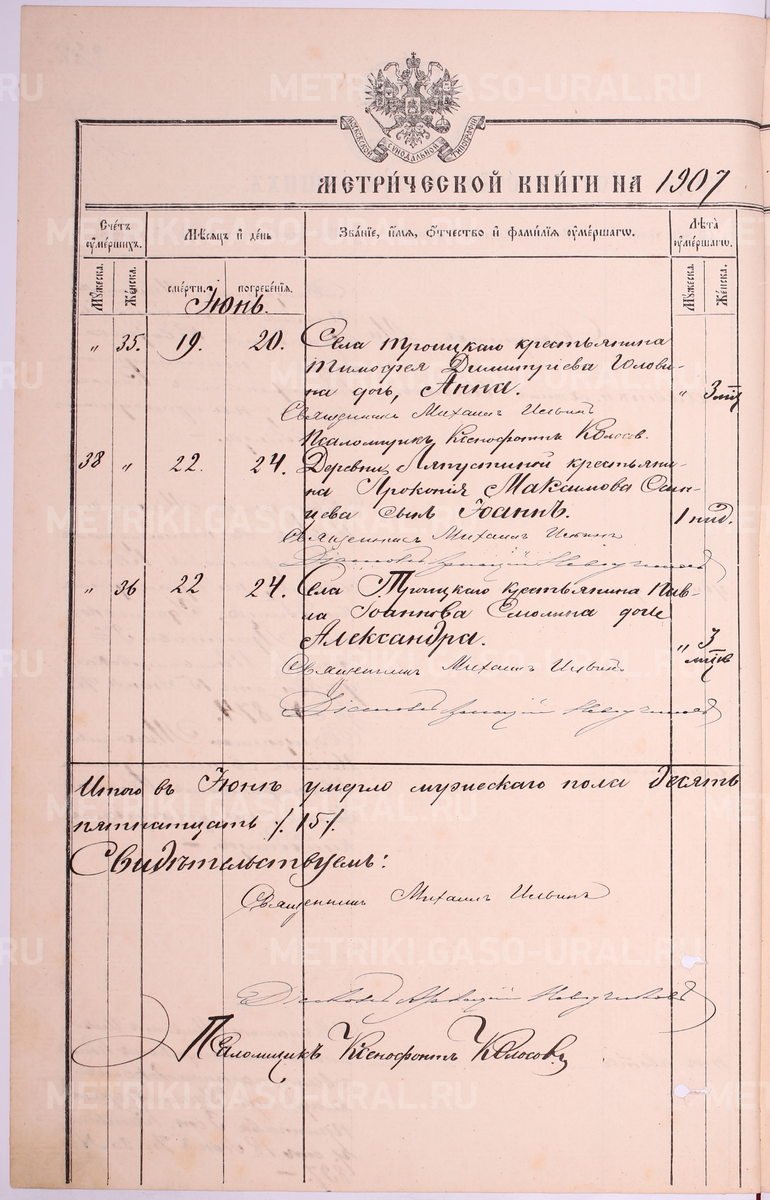 МОСКОВСКОЙ СѴНОДАЛЬНОЙ ТИПОГРАФІИ
МЕТРИ́ЧЕСКОЙ КНИ́ГИ НА 1907
Сче́тъ ᲂу҆ме́ршихъ.
Мѣ́сяцъ и҆ де́нь
Зва́нїе, и҆́мя, ѻ҆́тчество и҆ фамилїя ᲂу҆ме́ршагѡ.
Лѣта̀ ᲂу҆ме́ршагѡ.
Мꙋ́жеска. Же́нска. сме́рти. погребе́нїя. Мꙋ́жеска. Же́нска.
Іюнь.
„ 35. 19. 20. Села Троицкаго крестьянина
Тимофея Димитріева Голови-
на дочь, Анна. „ 3 мѣц
Священникъ Михаилъ Ильинъ
Псаломщикъ Ксенофонтъ Колосов.
38 „ 22. 24. Деревни Ляпустиной крестьяни-
на Прокопія Максимова
сынъ Іоаннъ. 1 нид.
Священникъ Михаилъ Ильинъ
Діаконъ
„ 36 22 24. Села Троицкаго крестьянина Пав-
ла Іоаннова Смолина дочь
Александра. „ 3 мѣцъ
Священникъ Михаилъ Ильинъ
Діаконъ
Итого въ Іюнѣ умерло мужескаго пола десять
пятнатцать /15/.
Свидѣтельствуемъ:
Священникъ Михаилъ Ильинъ
Діаконъ
Псаломщикъ Ксенофонтъ Колосовъ
METRIKI.GASO-URAL.RU